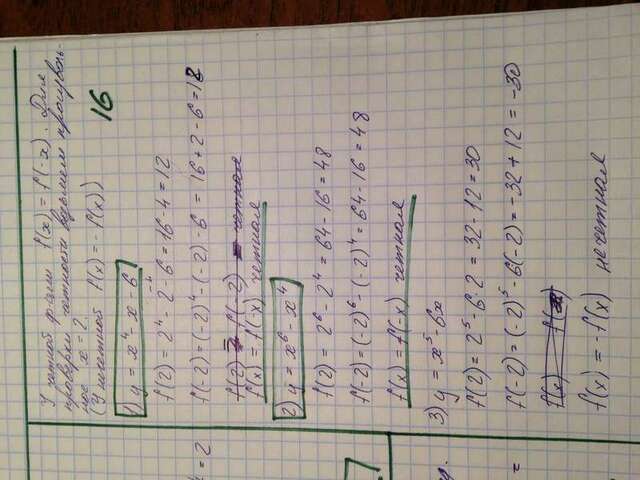 У четной ф-ции f(x) = f(-x). Для
проверки четности возьмем произволь-
ное x = 2
(У нечетной f(x) = -f(x))
16
1) y = x⁴ - x - 6
f(2) = 2⁴ - 2 - 6 = 16 - 4 = 12
f(-2) = (-2)⁴ - (-2) - 6 = 16 + 2 - 6 = 12
f(2) = f(-2) - четная
f(x) = f(x) четная
2) y = x⁶ - x⁴
f(2) = 2⁶ - 2⁴ = 64 - 16 = 48
f(-2) = (-2)⁶ - (-2)⁴ = 64 - 16 = 48
f(x) = f(-x) четная
3) y = x⁵ - 6x
f(2) = 2⁵ - 6·2 = 32 - 12 = 30
f(-2) = (-2)⁵ - 6(-2) = -32 + 12 = -30
f(x) = -f(x) нечетная
= 2
ед.
=